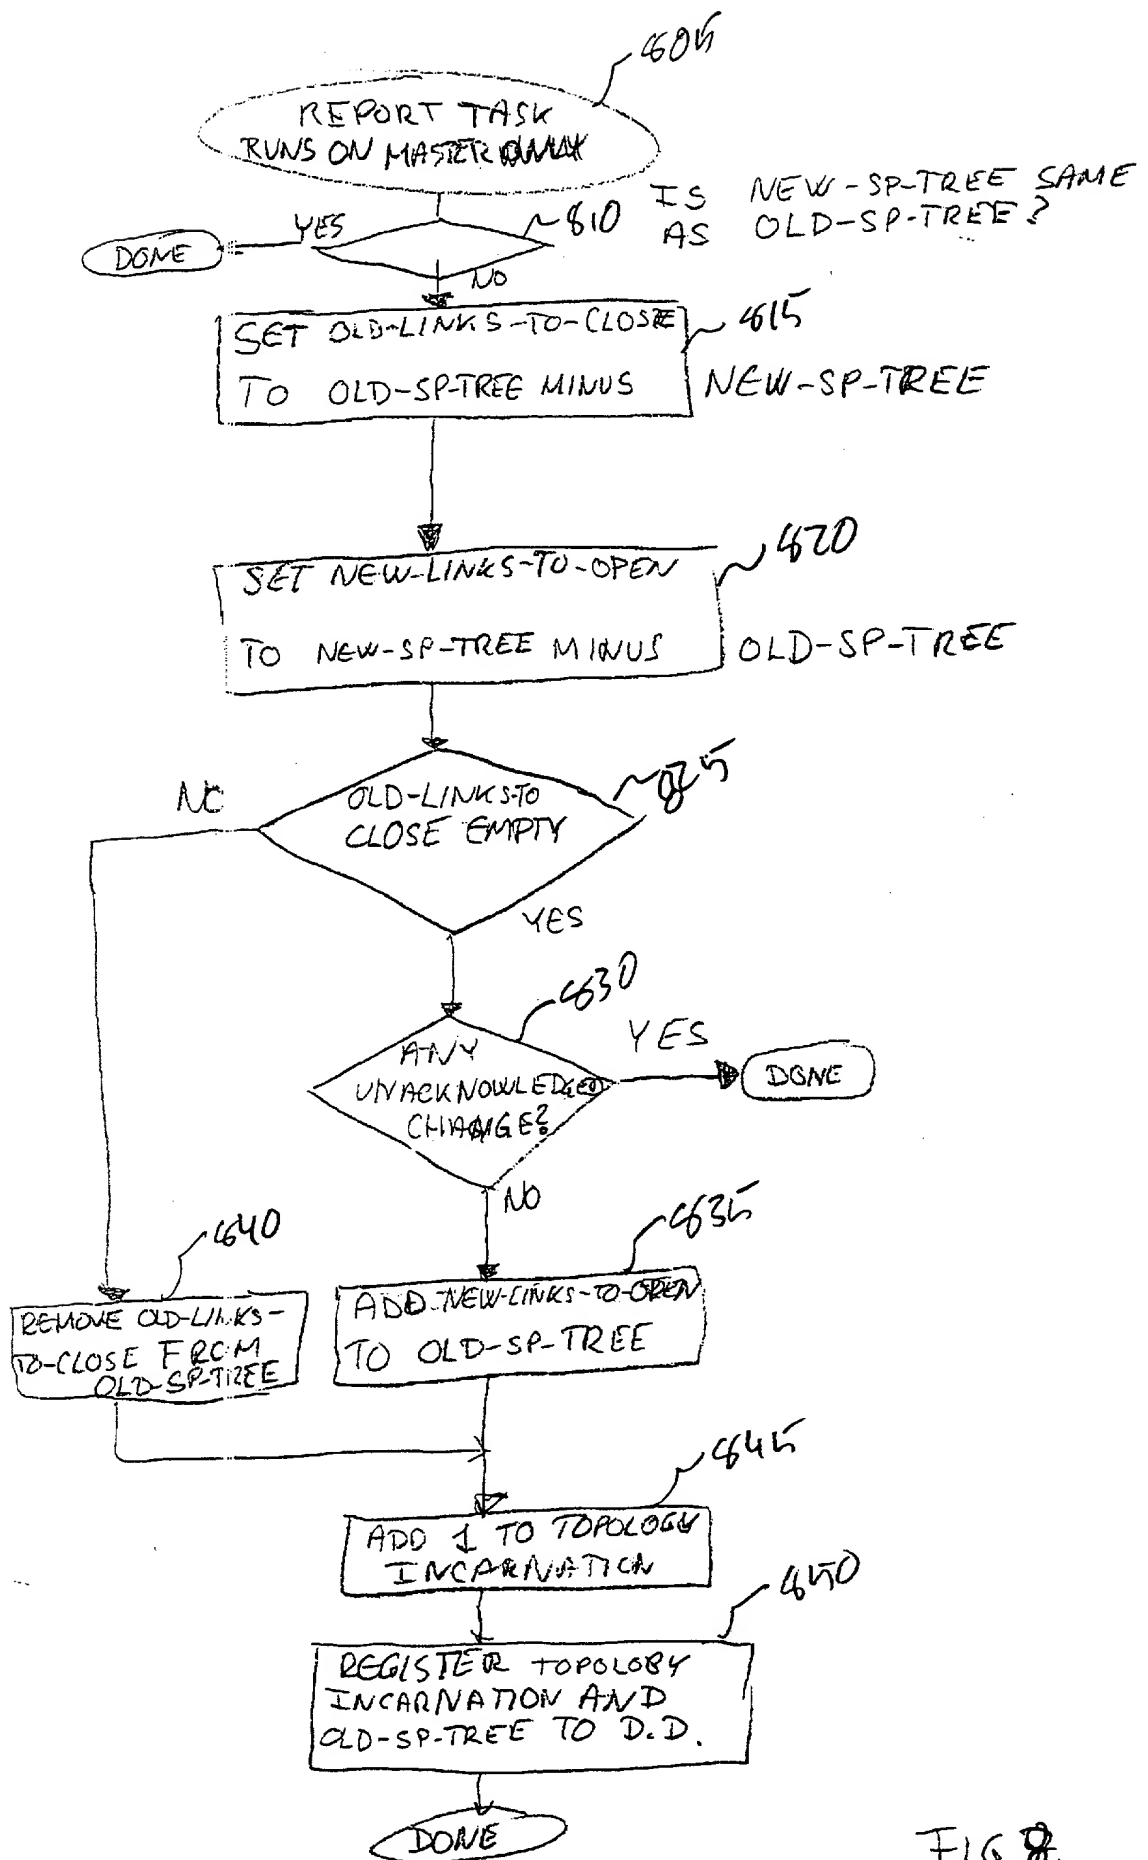 805
REPORT TASK
RUNS ON MASTER ONLY
IS NEW-SP-TREE SAME
AS OLD-SP-TREE?
810
YES
DONE
NO
SET OLD-LINKS-TO-CLOSE
815
TO OLD-SP-TREE MINUS NEW-SP-TREE
820
SET NEW-LINKS-TO-OPEN
TO NEW-SP-TREE MINUS OLD-SP-TREE
825
NO
OLD-LINKS-TO
CLOSE EMPTY
YES
830
ANY
UNACKNOWLEDGED
CHANGE?
YES
DONE
NO
835
840
ADD-NEW-LINKS-TO-OPEN
TO OLD-SP-TREE
REMOVE OLD-LINKS-
TO-CLOSE FROM
OLD-SP-TREE
845
ADD 1 TO TOPOLOGY
INCARNATION
850
REGISTER TOPOLOGY
INCARNATION AND
OLD-SP-TREE TO D.D.
DONE
FIG 8